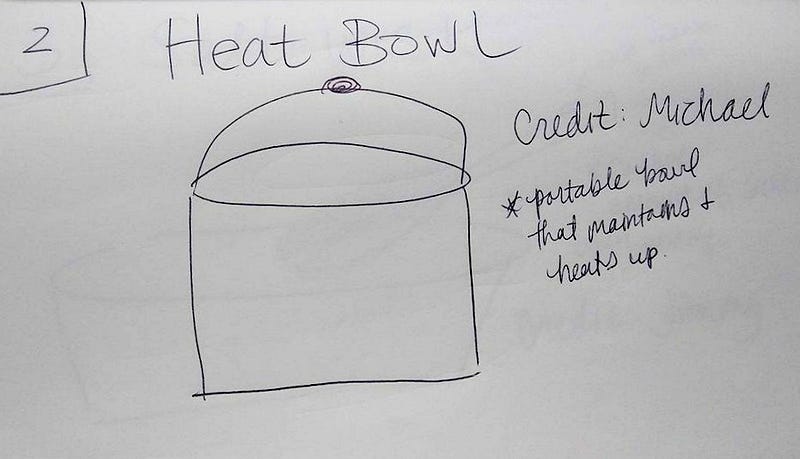 2
Heat Bowl
Credit: Michael
* portable bowl
that maintains &
heats up.